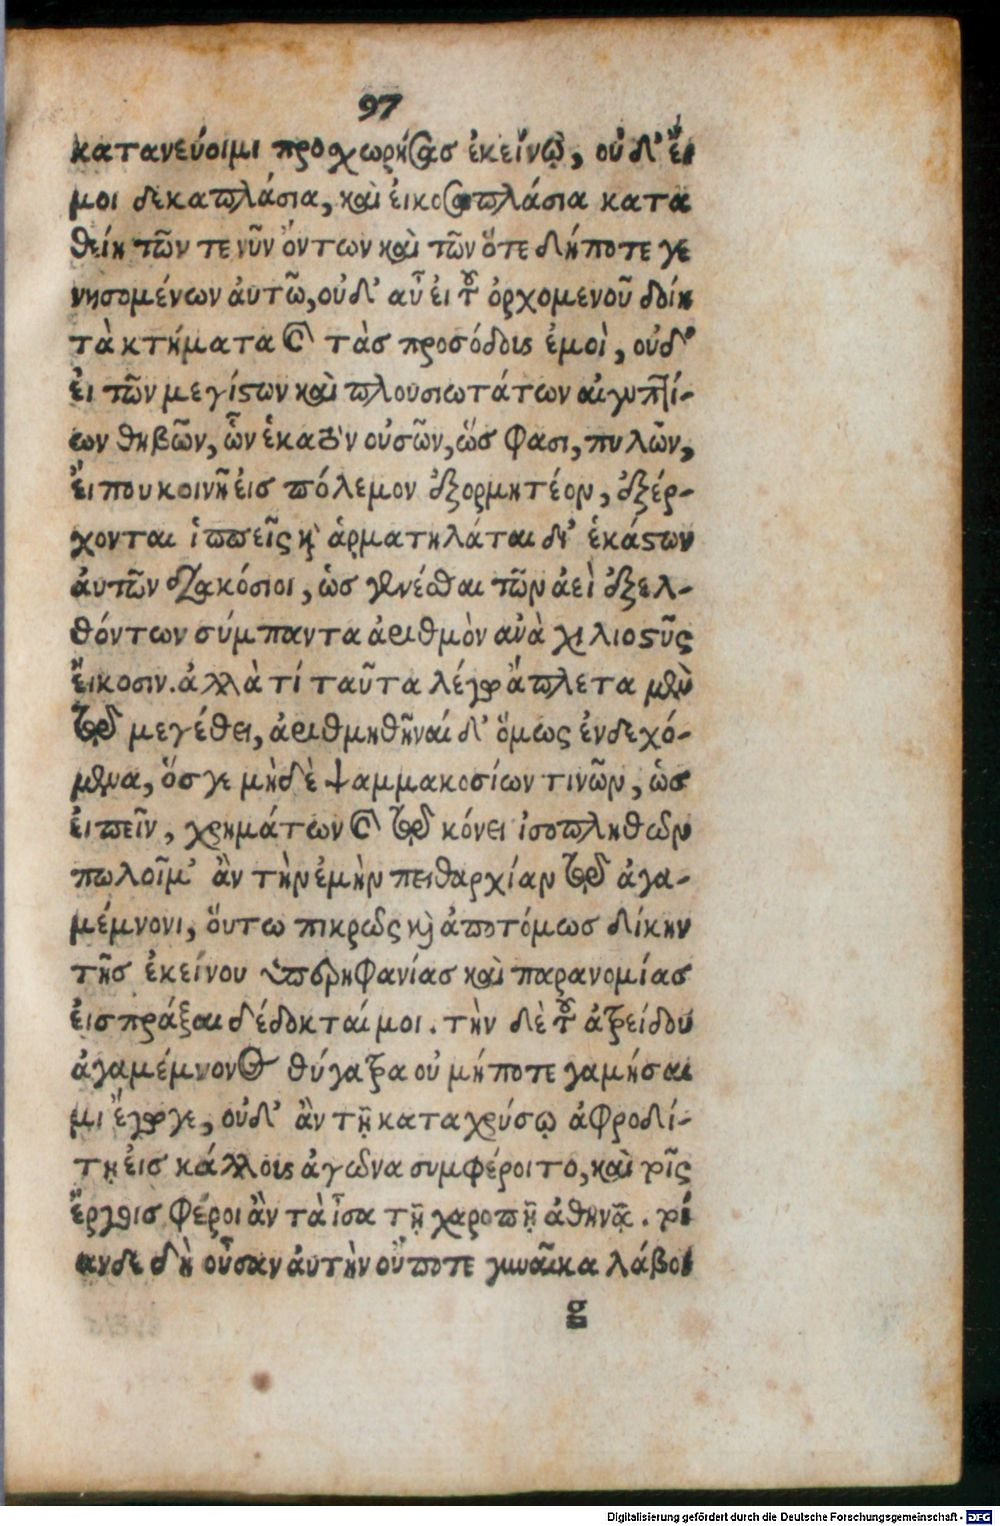 97
κατανεύοιμι προχωρήσας ἐκείνῳ, οὐδ' ἔι
μοι δεκαπλάσια, καὶ ἐικοσαπλάσια κατα
θείη τῶν τε νῦν ὄντων καὶ τῶν ὅτε δήποτε γε
νησομένων ἀυτῶ, οὐδ' αὖ ἐι τοῦ ὀρχομενοῦ δοίη
τὰ κτήματα καὶ τὰς προσόδους ἐμοὶ, οὐδ'
ἐι τῶν μεγίστων καὶ πλουσιωτάτων αἰγυπτί-
ων θηβῶν, ὧν ἑκατὸν οὐσῶν, ὥς φασι, πυλῶν,
ἔι που κοινῆ ἐις πόλεμον ἐξορμητέον, ἐξέρ-
χονται ἱππεῖς καὶ ἁρματηλάται δι' ἑκάστων
ἀυτῶν διακόσιοι, ὡς γενέσθαι τῶν ἀεὶ ἐξελ-
θόντων σύμπαντα ἀριθμὸν ἀνὰ χιλιοστῦς
ἔικοσιν. ἀλλὰ τί ταῦτα λέγω ἄπλετα μὲν
τῷ μεγέθει, ἀριθμηθῆναί δ' ὅμως ἐνδεχό-
μενα, ὅς γε μηδὲ ψαμμακοσίων τινῶν, ὡς
ἐιπεῖν, χρημάτων καὶ τῷ κόνει ἰσοπληθῶν
πωλοῖμ' ἂν τὴν ἐμὴν πειθαρχίαν τῷ ἀγα-
μέμνονι, ὅυτω πικρῶς καὶ ἀποτόμως δίκην
τῆς ἐκείνου ὑπερηφανίας καὶ παρανομίας
ἐισπράξαι δέδοκταί μοι. τὴν δὲ τοῦ ἀτρείδου
ἀγαμέμνονος θύγατρα οὐ μήποτε γαμήσαι
μι ἔγωγε, οὐδ' ἂν τῇ καταχρύσῳ ἀφροδί-
τῃ ἐις κάλλους ἀγῶνα συμφέροιτο, καὶ τοῖς
ἔργοις φέροι ἂν τὰ ἶσα τῇ χαροπῇ ἀθηνᾷ. τοί
ανδε δὴ οὖσαν ἀυτὴν οὔποτε γυναῖκα λάβοι
g
Digitalisierung gefördert durch die Deutsche Forschungsgemeinschaft - DFG